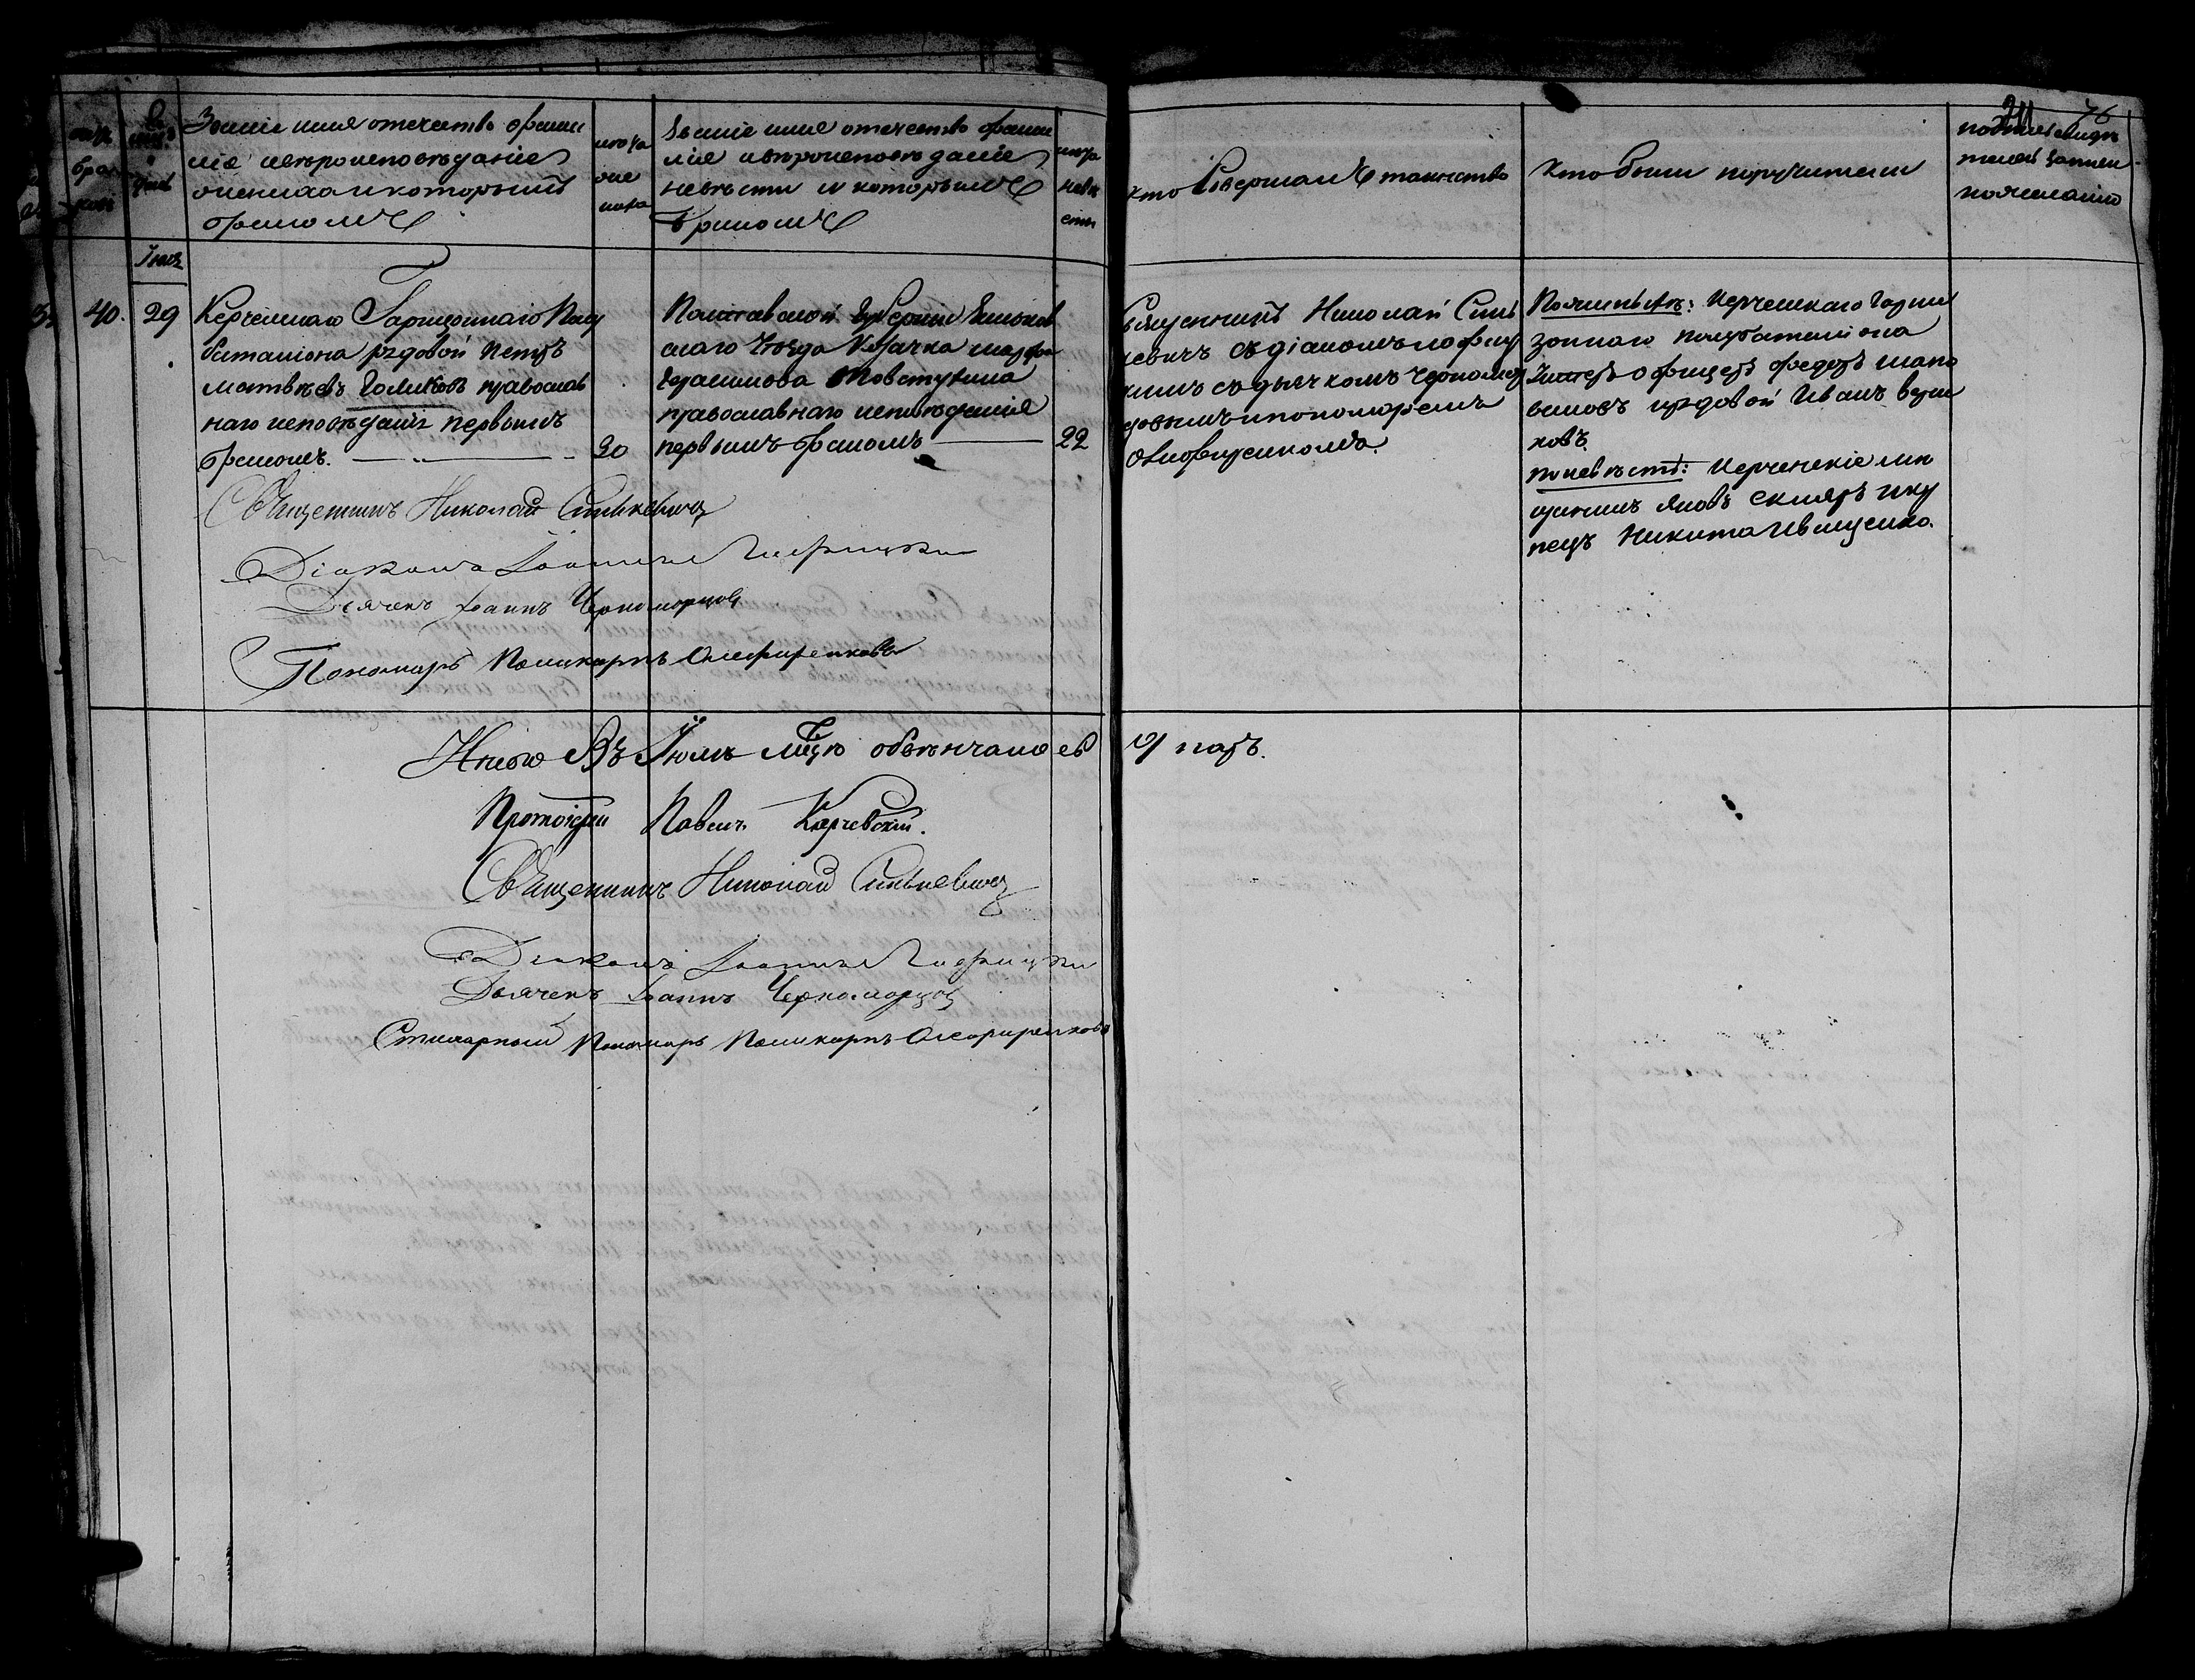 241 76
счетъ браковъ
Звание имя отечество фами
лiя и вѣроисповѣданiе
жениха и которымъ
бракомъ
лѣта
же
ниха
Званiе имя отечество фами
лiя и вѣроисповѣданiе
невѣсты и которымъ
бракомъ
лѣта
невѣ
сты
кто совершалъ таинство
Кто были поручители
Iюль
40. 29
Керченскаго Гарнизоннаго Полу
баталiона рядовой Петръ
Матвѣевъ Голиковъ православ
наго исповѣданiя первымъ
бракомъ.
30
Полтавской Губернiи
скаго уѣзда Козачка Марфа
Герасимова Товстухина
православнаго исповѣданiя
первымъ бракомъ
22
Священникъ Николай Синь
кевичъ съ дiакономъ Гафиц
кимъ съ дьячкомъ Черномор
цовымъ и пономаремъ
Олефиренкомъ.
По женихѣ: Керченскаго Гарни
зоннаго полубаталiона
Унтеръ офицеръ Федоръ Шапо
валовъ и рядовой Иванъ
ковъ.
по невѣстѣ: Керченскiе мѣ
щанинъ Яковъ Скляръ и ку
пецъ Никита Иващенко.
Священникъ Николай Синькевичъ
Дiаконъ Iоаннъ Гафицкiй
Дьячекъ Iоаннъ Черноморцовъ
Пономарь Поликарпъ Олефиренковъ
Итого Въ Iюлѣ мѣцѣ обвѣнчано 9 паръ.
Протоiерей Павелъ Карчевскiй.
Священникъ Николай Синькевичъ
Дiаконъ Iоаннъ Гафицкiй
Дьячекъ Iоаннъ Черноморцовъ
Стихарный Пономарь Поликарпъ Олефиренковъ